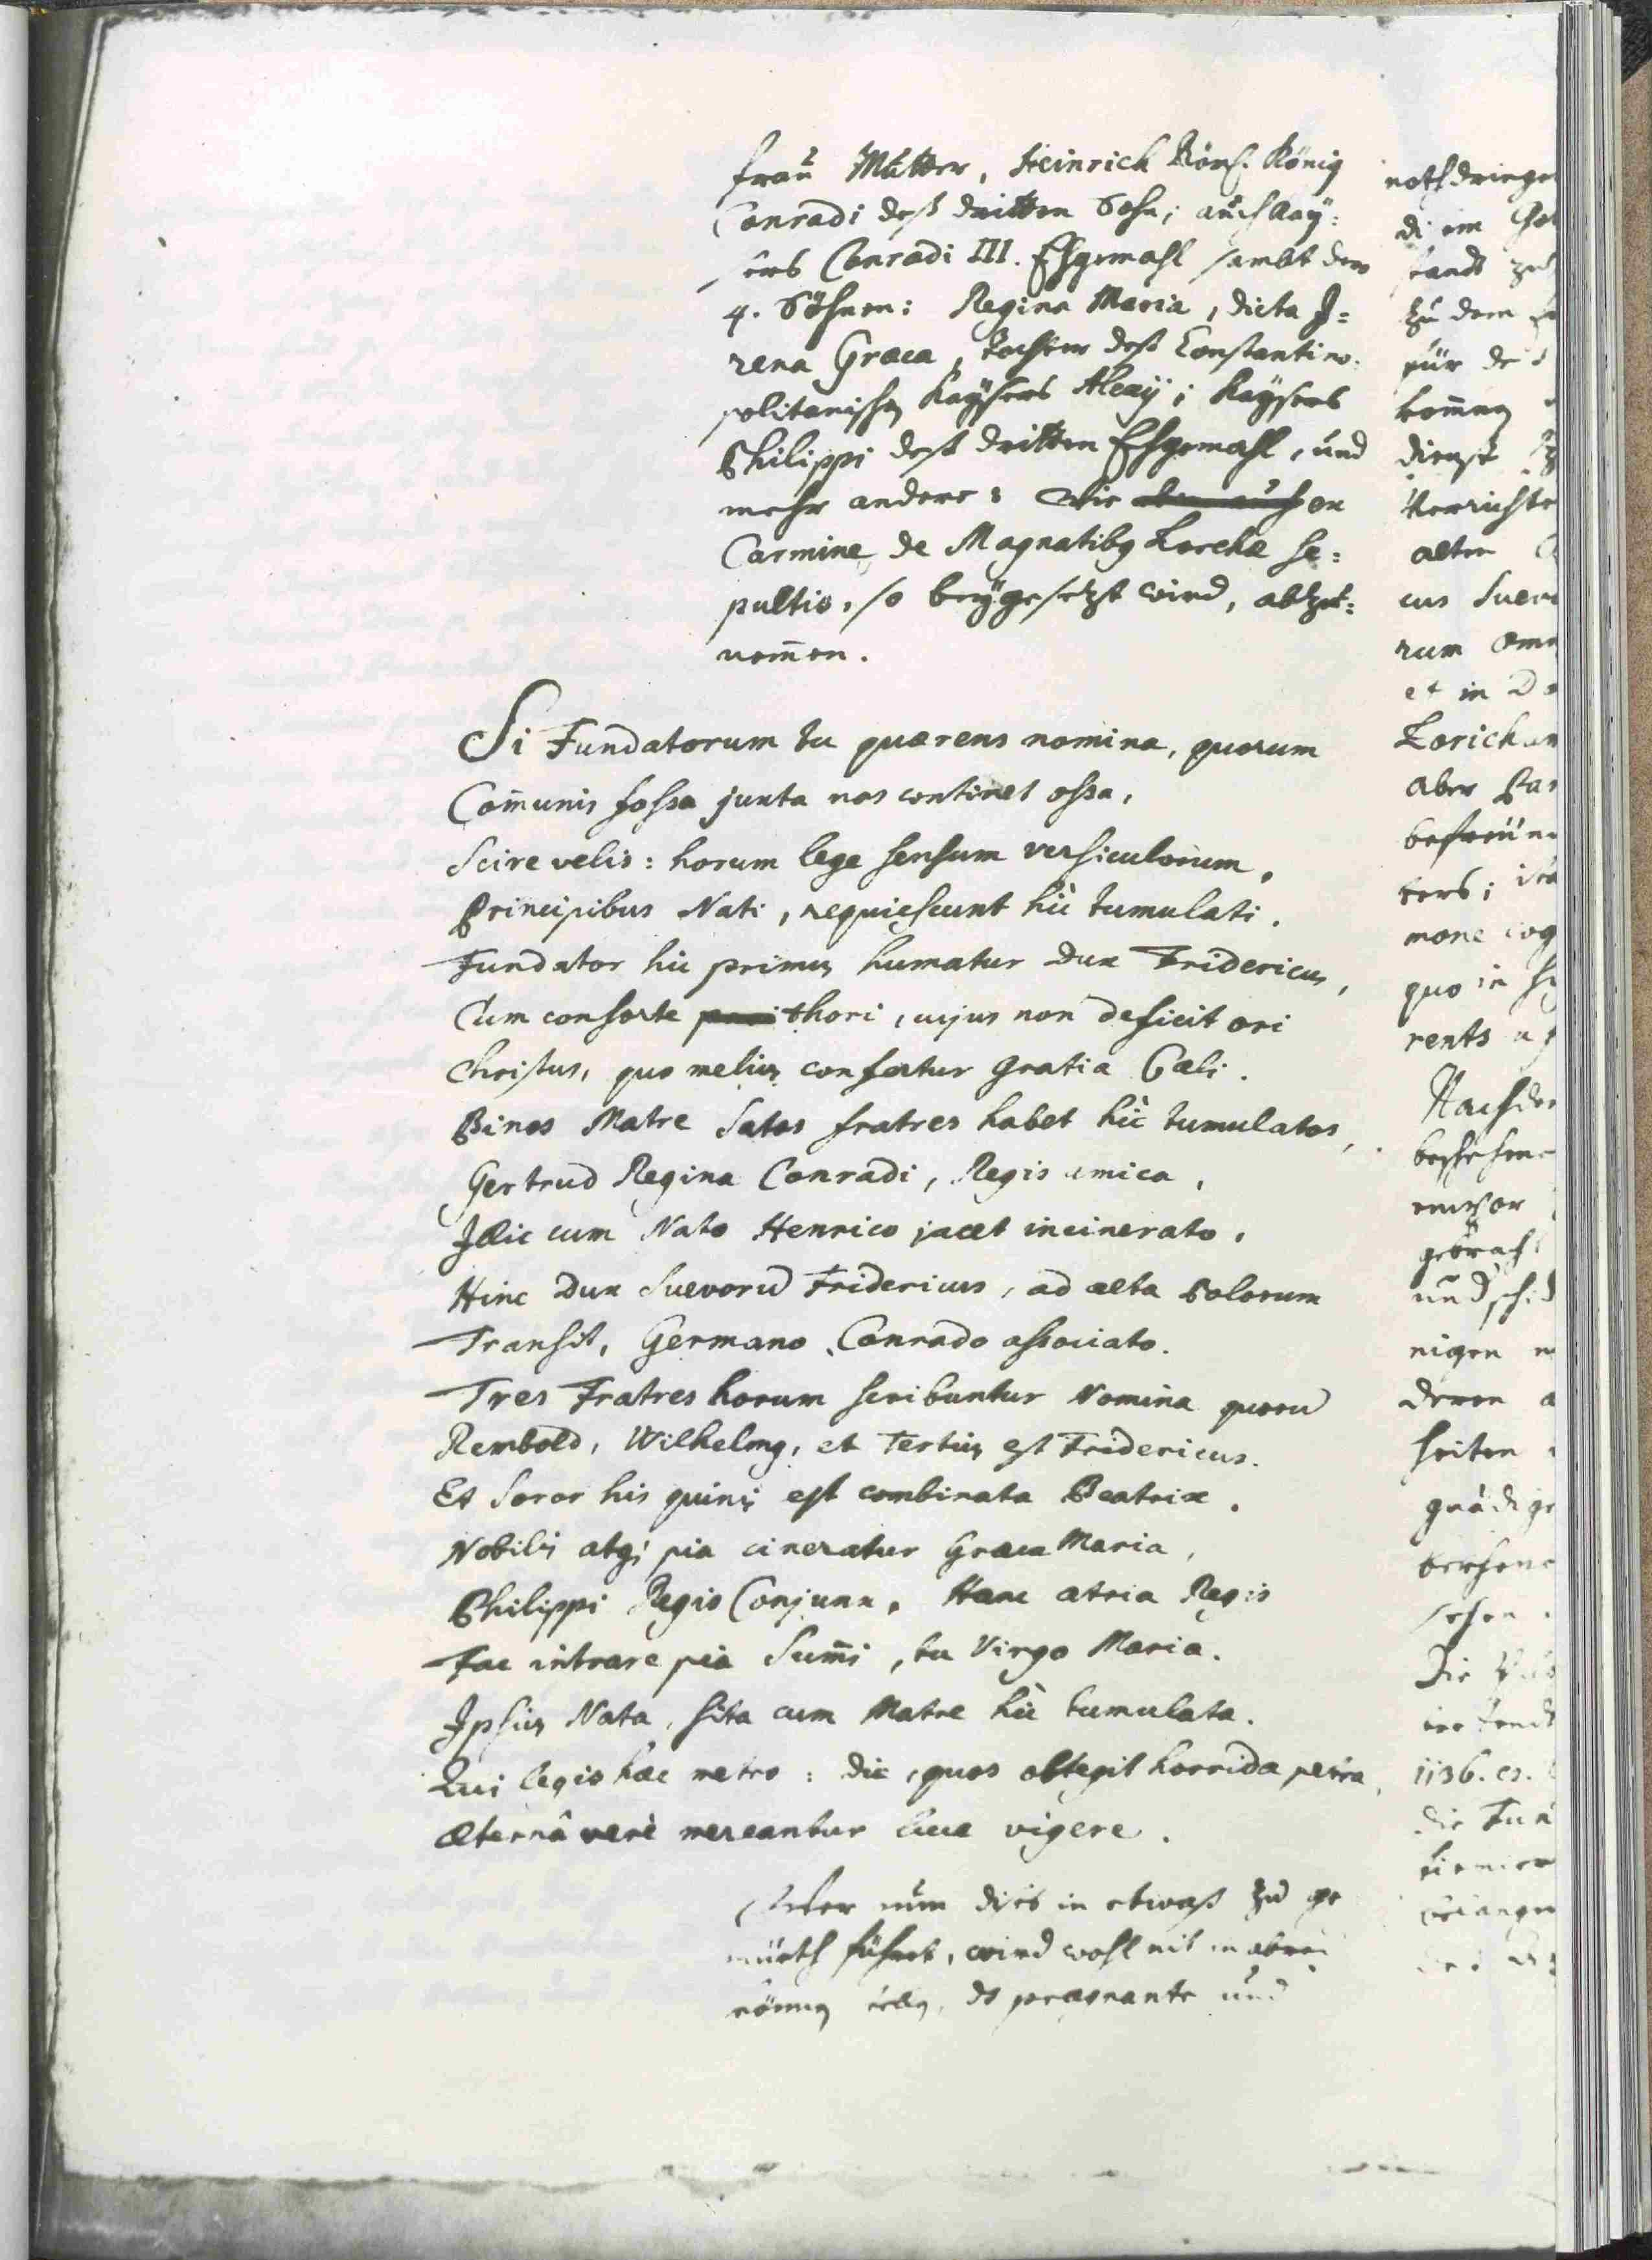 fraŭ Mŭtter, Heinrich Röms. König
Conradi deß dritten Sohn; aŭch Kaÿ:
sers Conradi III. Ehgemahl sambt dero
4. Söhnen: Regina Maria, dicta I=
rena Græca, Tochter deß Constantino:
politanischen Kaÿsers Alexij; Kaÿsers
Philippi deß dritten Ehgemahl, ŭnd
mehr andere: Wie ex
Carmine, de Magnatibus Lorchæ se:
pultis, so beÿgesetzt wird, abzŭ:
nem̄en.
Si Fundatorum tu quærens nomina, quorum
Com̄unis fossa juxta nos continet ossa,
Scire velis: horum lege sensum versiculorum,
Principibus Nati, requiescunt hìc tumulati.
Fundator hic primus humatur Dux Fridericus,
Cum consorte thori, cujus non deficit ori
Christus, quo melius confertur gratia Cæli.
Binos Matre Satos fratres habet hìc tumulatos,
Gertrud Regina Conradi, Regis amica,
Illic cum Nato Henrico jacet incinerato.
Hinc Dux Suevorū Fridericus, ad alta Polorum
Transit, Germano Conrado associato.
Tres Fratres horum scribuntur Nomina quorū
Rembold, Wilhelmus, et Tertius est Fridericus.
Et Soror his quinis est combinata Beatrix.
Nobilis atq; pia cineratur Græca Maria,
Philippi Regis Conjunx, Hanc atria Regis
Fac intrare pia Sum̄i, tu Virgo Maria.
Ipsius Nata, sita cum Matre hìc tumulata.
Qui legis hæc metro: dic, quos obtegit horrida petra,
Æternâ verè mereantur luce vigere.
Wer nŭn diß in etwaß zŭ ge
mŭeth führet, wird wohl nit in abred
ds prægnante ŭnd
nothdringe
di em
landt zŭ
zŭ dem
für de
kom̄en
dienst
Verrichte
alten
cus Suev
rum om
et in D
Lorichum
aber
befreün
ters;
mone cog
quo in
rents
Nachde
beschehen
gebrach
ŭnd
nigen
deren a
seiten
gnädige
sehen
Die
1136. es.
die Fun